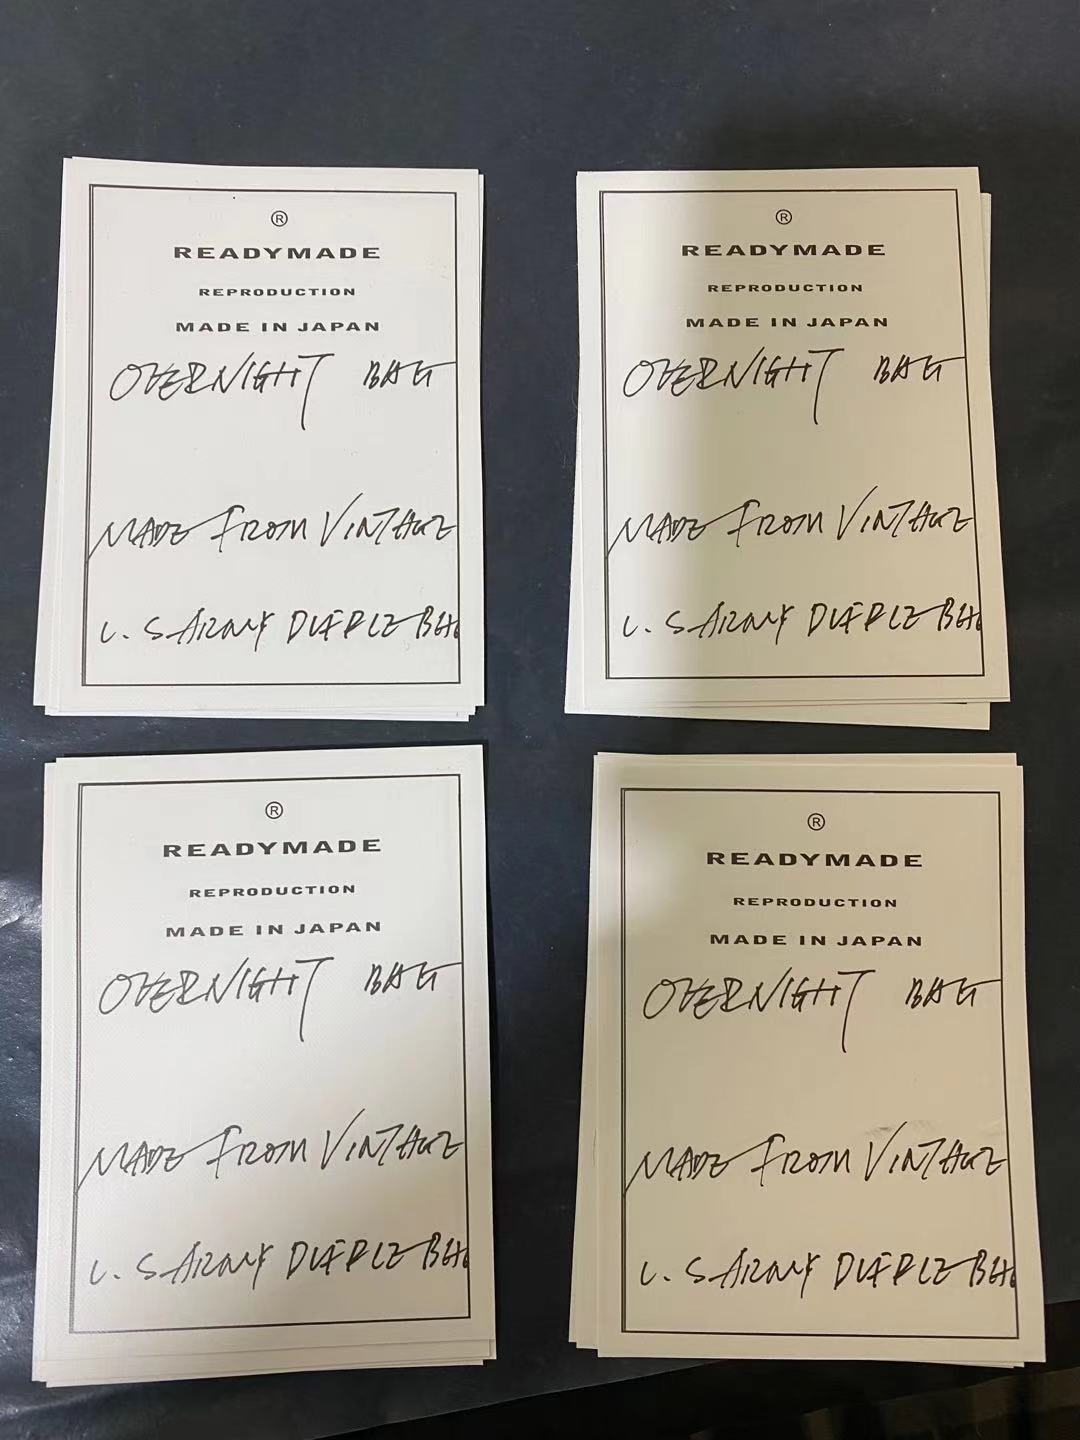 ®
READYMADE
REPRODUCTION
MADE IN JAPAN
OVERNIGHT BAG
MADE FROM VINTAGE
U.S ARMY DUFFLE BAG
®
READYMADE
REPRODUCTION
MADE IN JAPAN
OVERNIGHT BAG
MADE FROM VINTAGE
U.S ARMY DUFFLE BAG
®
READYMADE
REPRODUCTION
MADE IN JAPAN
OVERNIGHT BAG
MADE FROM VINTAGE
U.S ARMY DUFFLE BAG
®
READYMADE
REPRODUCTION
MADE IN JAPAN
OVERNIGHT BAG
MADE FROM VINTAGE
U.S ARMY DUFFLE BAG